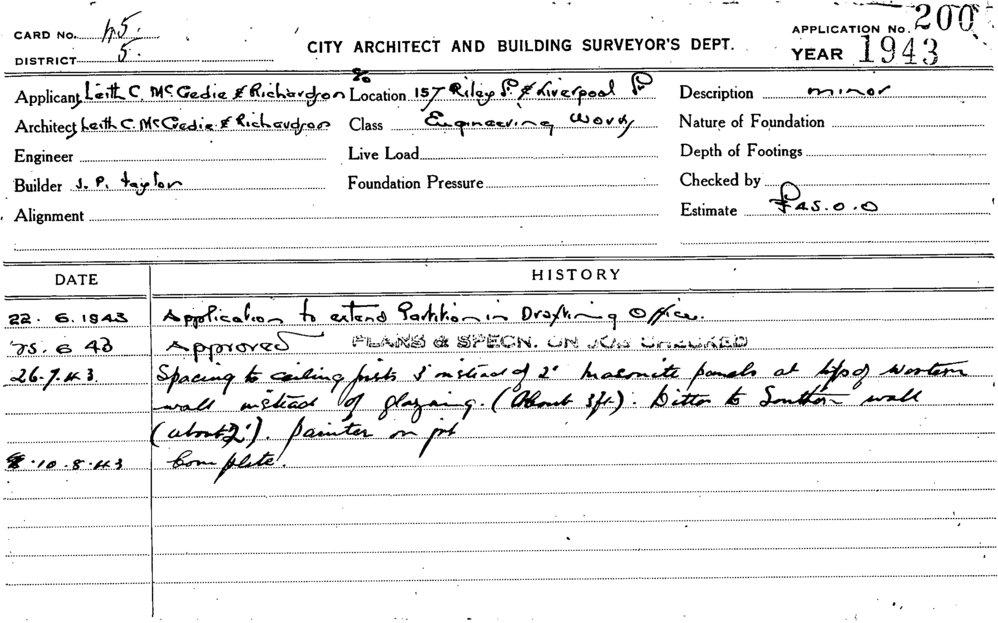 CARD No. 45.
DISTRICT 5.
CITY ARCHITECT AND BUILDING SURVEYOR'S DEPT.
APPLICATION No. 200
YEAR 1943
Applicant Leith C. McCredie & Richardson
Location 157 Riley St. & Liverpool St
Description minor
Architect Leith C. McCredie & Richardson
Class Engineering Works
Nature of Foundation
Engineer
Live Load
Depth of Footings
Builder J. P. Taylor
Foundation Pressure
Checked by
Alignment
Estimate £45.0.0
DATE
HISTORY
22.6.1943 Application to extend Partition in Drafting Office.
25.6 43 Approved PLANS & SPECN. ON JOB CHECKED
26.7.43. Spacing to ceiling joists 3' instead of 2' Masonite panels at top of Western
wall instead of glazing. (About 3ft). Ditto to Southern wall
(about 2'). Painter on job
10.8.43 Complete.